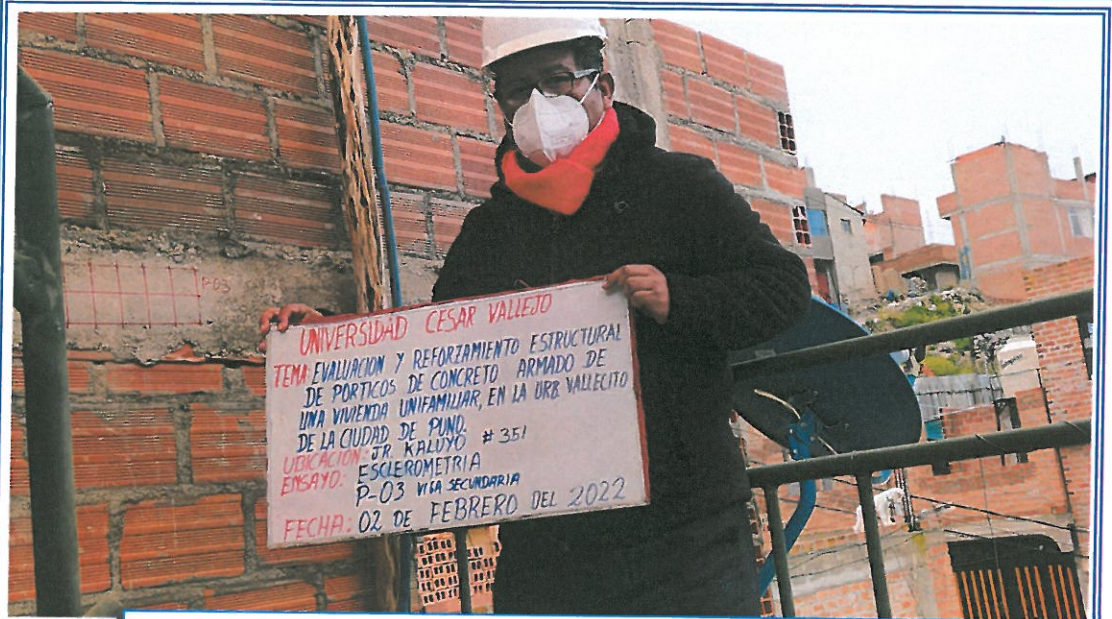 P-03
UNIVERSIDAD CESAR VALLEJO
TEMA: EVALUACION Y REFORZAMIENTO ESTRUCTURAL
DE PORTICOS DE CONCRETO ARMADO DE
UNA VIVIENDA UNIFAMILIAR, EN LA URB. VALLECITO
DE LA CIUDAD DE PUNO.
UBICACION: JR. KALUYO #351
ENSAYO: ESCLEROMETRIA
P-03 VIGA SECUNDARIA
FECHA: 02 DE FEBRERO DEL 2022